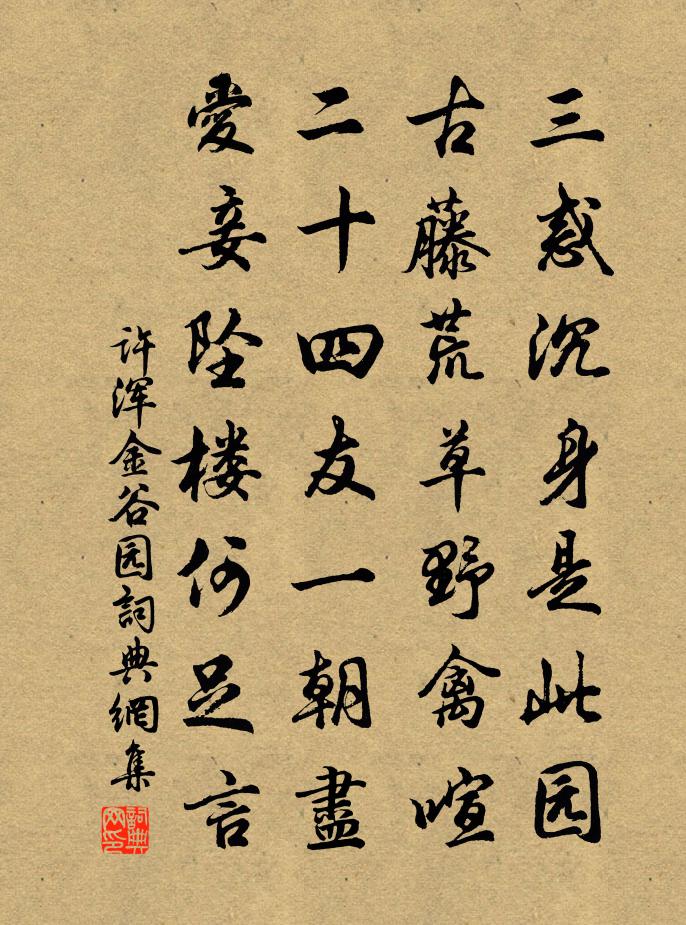 三惑沉身是此园
古藤荒草野禽喧
二十四友一朝盡
愛妾坠楼何足言
许浑金谷园詞典網集
詞典网印